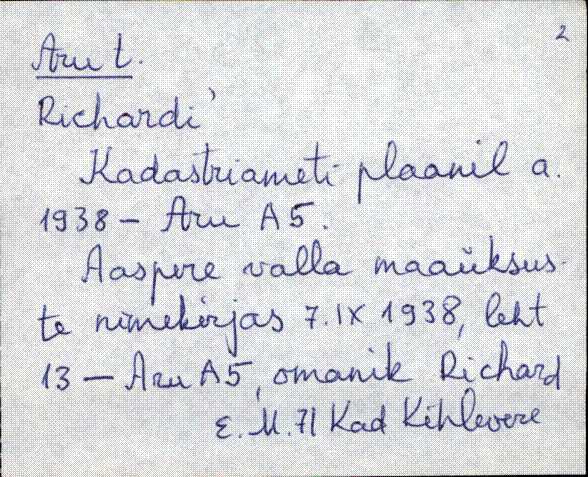 2
Aru t.
Richardi'
Kadastriameti plaanil a.
1938 – Aru A5.
Aaspere valla maaüksus-
te nimekirjas 7.IX 1938, leht
13 — Aru A5, omanik Richard
E. M. 71 Kad Kihlevere